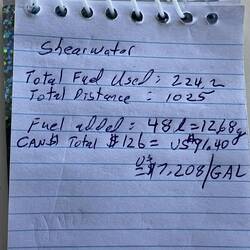 Shearwater
Total Fuel Used: 224.2
Total Distance : 1025
Fuel added: 48 l = 12.68g
CAN$ Total $126 = US$91.40
US
= $7.208/GAL